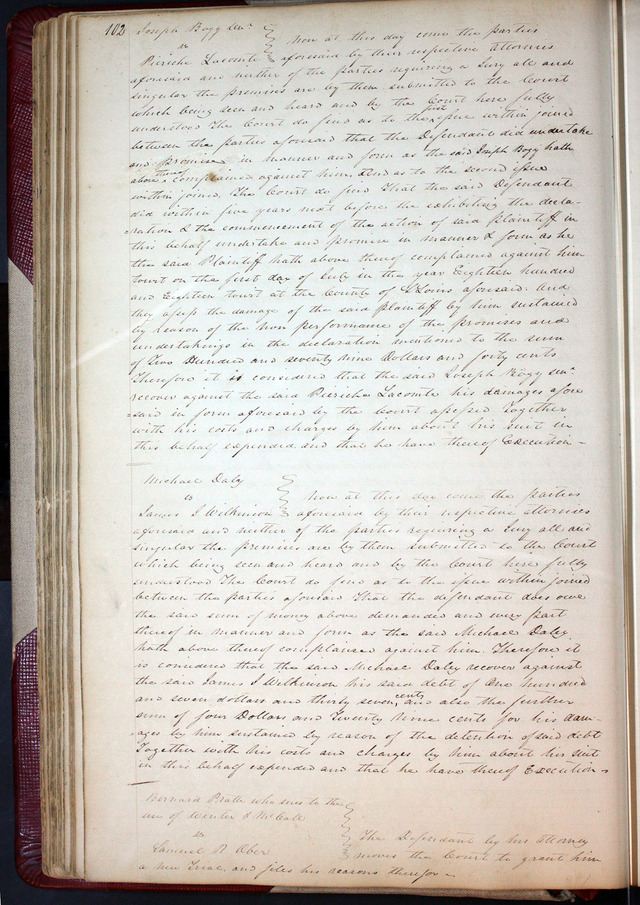 102
Joseph Bogy Senr
vs
Pieriche Lacomte
Now at this day come the parties
aforesaid by their respective attornies
aforesaid and neither of the parties requiring a Jury all and
singular the premises are by them submitted to the Court
which being seen and heard and by the Court here fully
understood The Court do find as to the first issue within joined
between the parties aforesaid that the Defendant did undertake
and promise in manner and form as the said Joseph Bogy hath
above thereof complained against him, And as to the second issue
within joined, The Court do find That the said Defendant
did within five years next before the exhibiting the decla-
ration & the commencement of the action of said plaintiff in
this behalf undertake and promise in manner & form as he
the said Plaintiff hath above thereof complained against him
towit on the first day of July in the year Eighteen hundred
and Eighteen towit at the County of St Louis aforesaid. And
they assess the damage of the said plaintiff by him sustained
by reason of the non performance of the promises and
undertakings in the declaration mentioned to the sum
of Two Hundred and seventy nine Dollars and forty cents
Therefore it is considered that the said Joseph Bogy Senr
recover against the said Pieriche Lacomte his damages afore
said in form aforesaid by the Court assessed Together
with his costs and charges by him about his suit in
this behalf expended and that he have thereof Execution -
Michael Daly
vs
James J Wilkinson
Now at this day come the parties
aforesaid by their respective attornies
aforesaid and neither of the parties requiring a Jury all and
singular the premises are by them submitted to the Court
which being seen and heard and by the Court here fully
understood The Court do find as to the issue within joined
between the parties aforesaid That the defendant does owe
the said sum of money above demanded and every part
thereof in manner and form as the said Michael Daley
hath above thereof complained against him. Therefore it
is considered that the said Michael Daley recover against
the said James J Wilkinson his said debt of One hundred
and seven dollars and thirty seven cents, and also the further
sum of four Dollars and Twenty nine cents for his dam-
ages by him sustained by reason of the detention of said debt
Together with his costs and charges by him about his suit
in this behalf expended and that he have thereof Execution -
Bernard Pratte who sues to the
use of Wenter & McCall
vs
Samuel R Ober
The Defendant by his attorney
moves the Court to grant him
a new Trial, and files his reasons therefor -